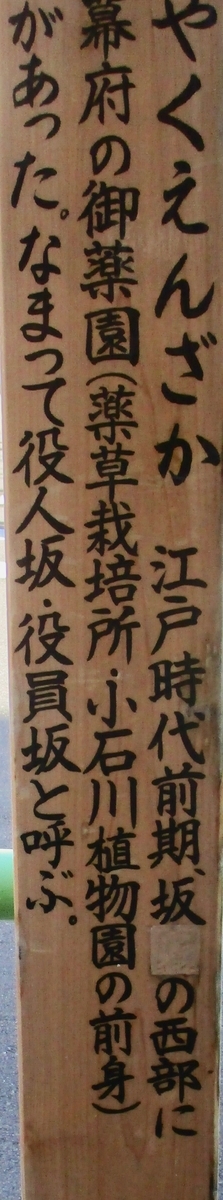 やくえんざか 江戸時代前期、坂の西部に
幕府の御薬園(薬草栽培所・小石川植物園の前身)
があった。なまって役人坂・役員坂と呼ぶ。